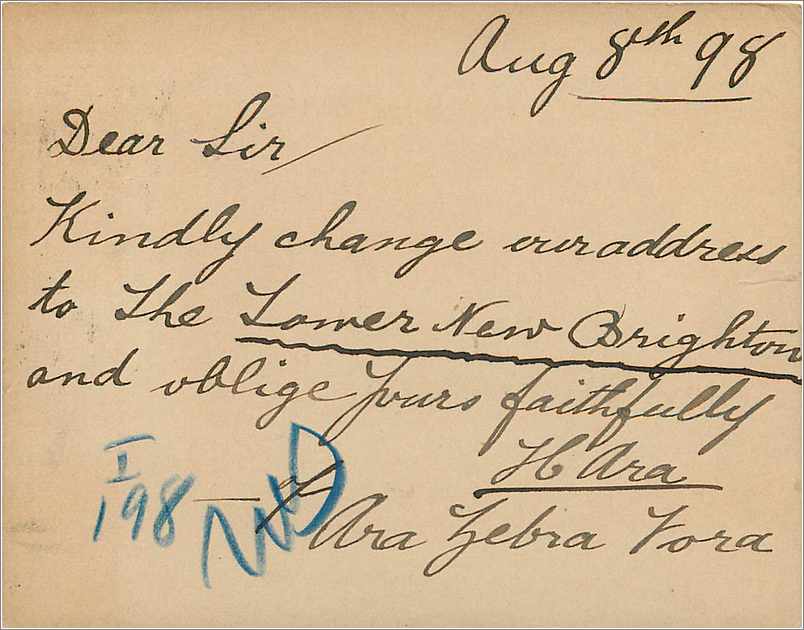 Aug 8th 98
Dear Sir
Kindly change our address
to The Tower New Brighton
and oblige yours faithfully
H Ara
Ara Zebra Vora
I
198